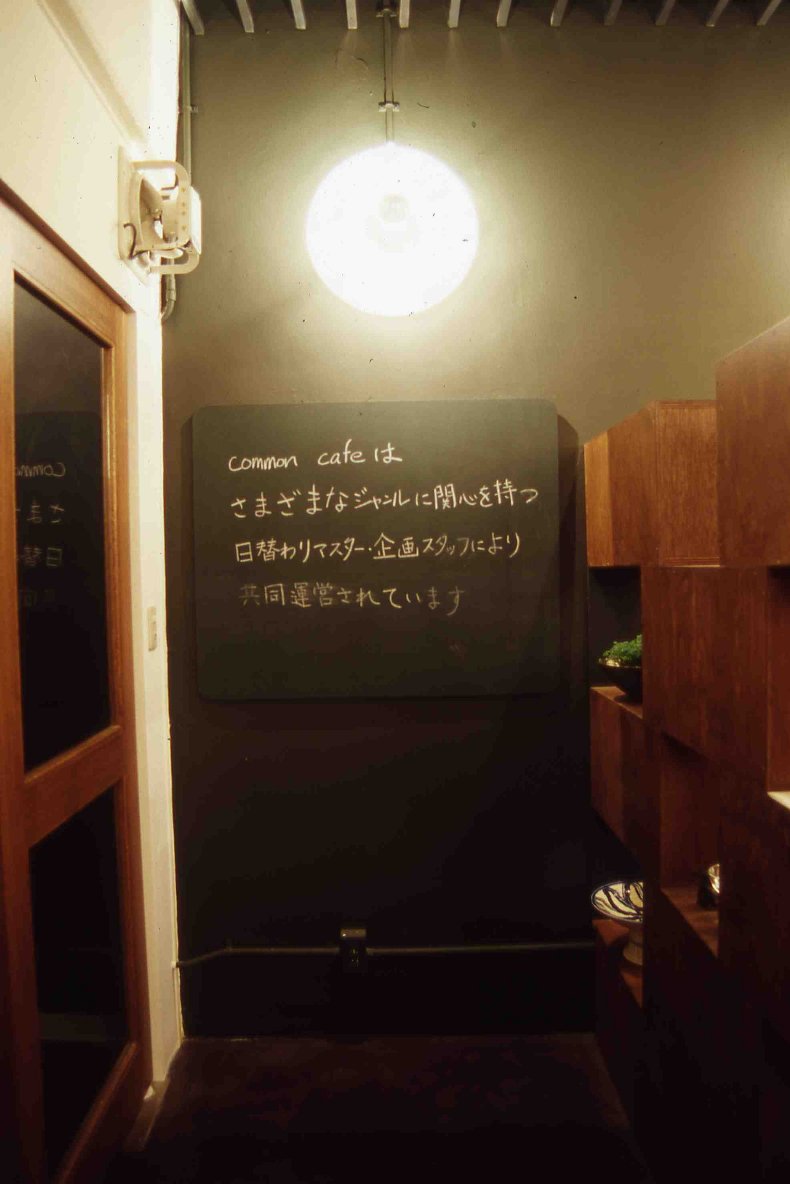 common cafe は
さまざまなジャンルに関心を持つ
日替わりマスター・企画スタッフにより
共同運営されています